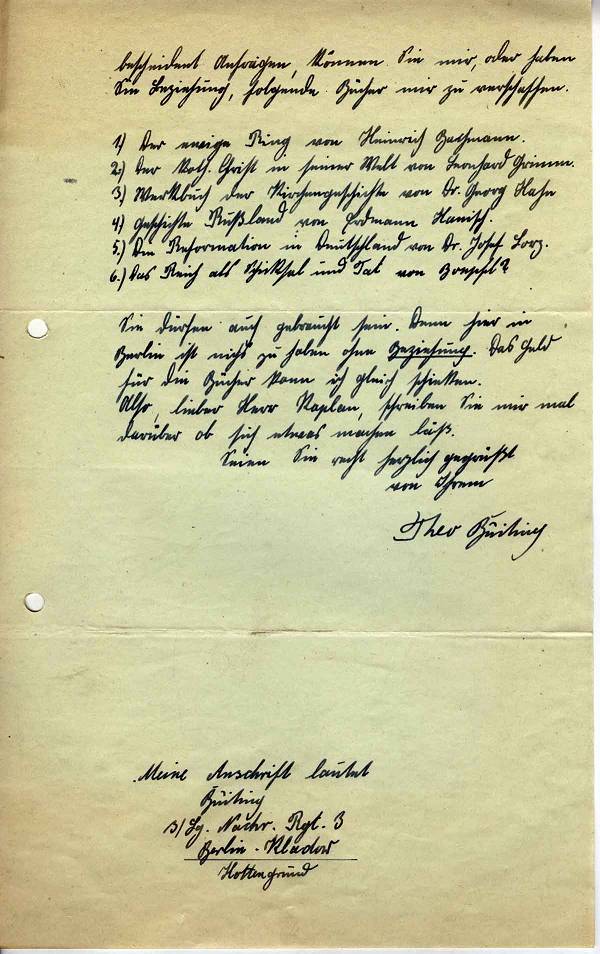 bescheident Anfragen, können Sie mir, oder haben
Sie Beziehung, folgende Bücher mir zu verschaffen.
1.) Der ewige Ring von Heinrich Bachmann.
2.) Der Kath. Christ in seiner Welt von Leonhard Grimm.
3.) Werkbuch der Kirchengeschichte von Dr. Georg Hahn
4.) Geschichte Rußland von Erdmann Hanisch.
5.) Die Reformation in Deutschland von Dr. Josef Lorz.
6.) Das Reich als Schicksal und Tat von
Sie dürfen auch gebraucht sein. Denn hier in
Berlin ist nichts zu haben ohne Beziehung. Das Geld
für die Bücher kann ich gleich schicken.
Also, lieber Herr Kaplan, schreiben Sie mir mal
darüber ob sich etwas machen läß.
Seien Sie recht herzlich gegrüßt
von Ihrem
Theo Büiting
Meine Anschrift lautet
Büiting
3/Lg. Nachr. Rgt. 3
Berlin-Kladow
Hottengrund